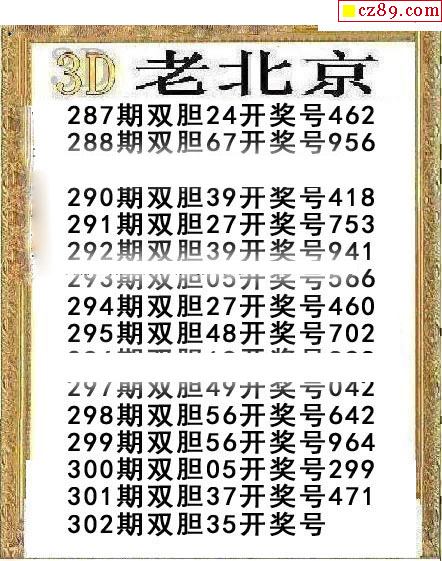 cz89.com
3D 老北京
287期双胆24开奖号462
288期双胆67开奖号956
290期双胆39开奖号418
291期双胆27开奖号753
292期双胆39开奖号941
293期双胆05开奖号566
294期双胆27开奖号460
295期双胆48开奖号702
297期双胆49开奖号042
298期双胆56开奖号642
299期双胆56开奖号964
300期双胆05开奖号299
301期双胆37开奖号471
302期双胆35开奖号